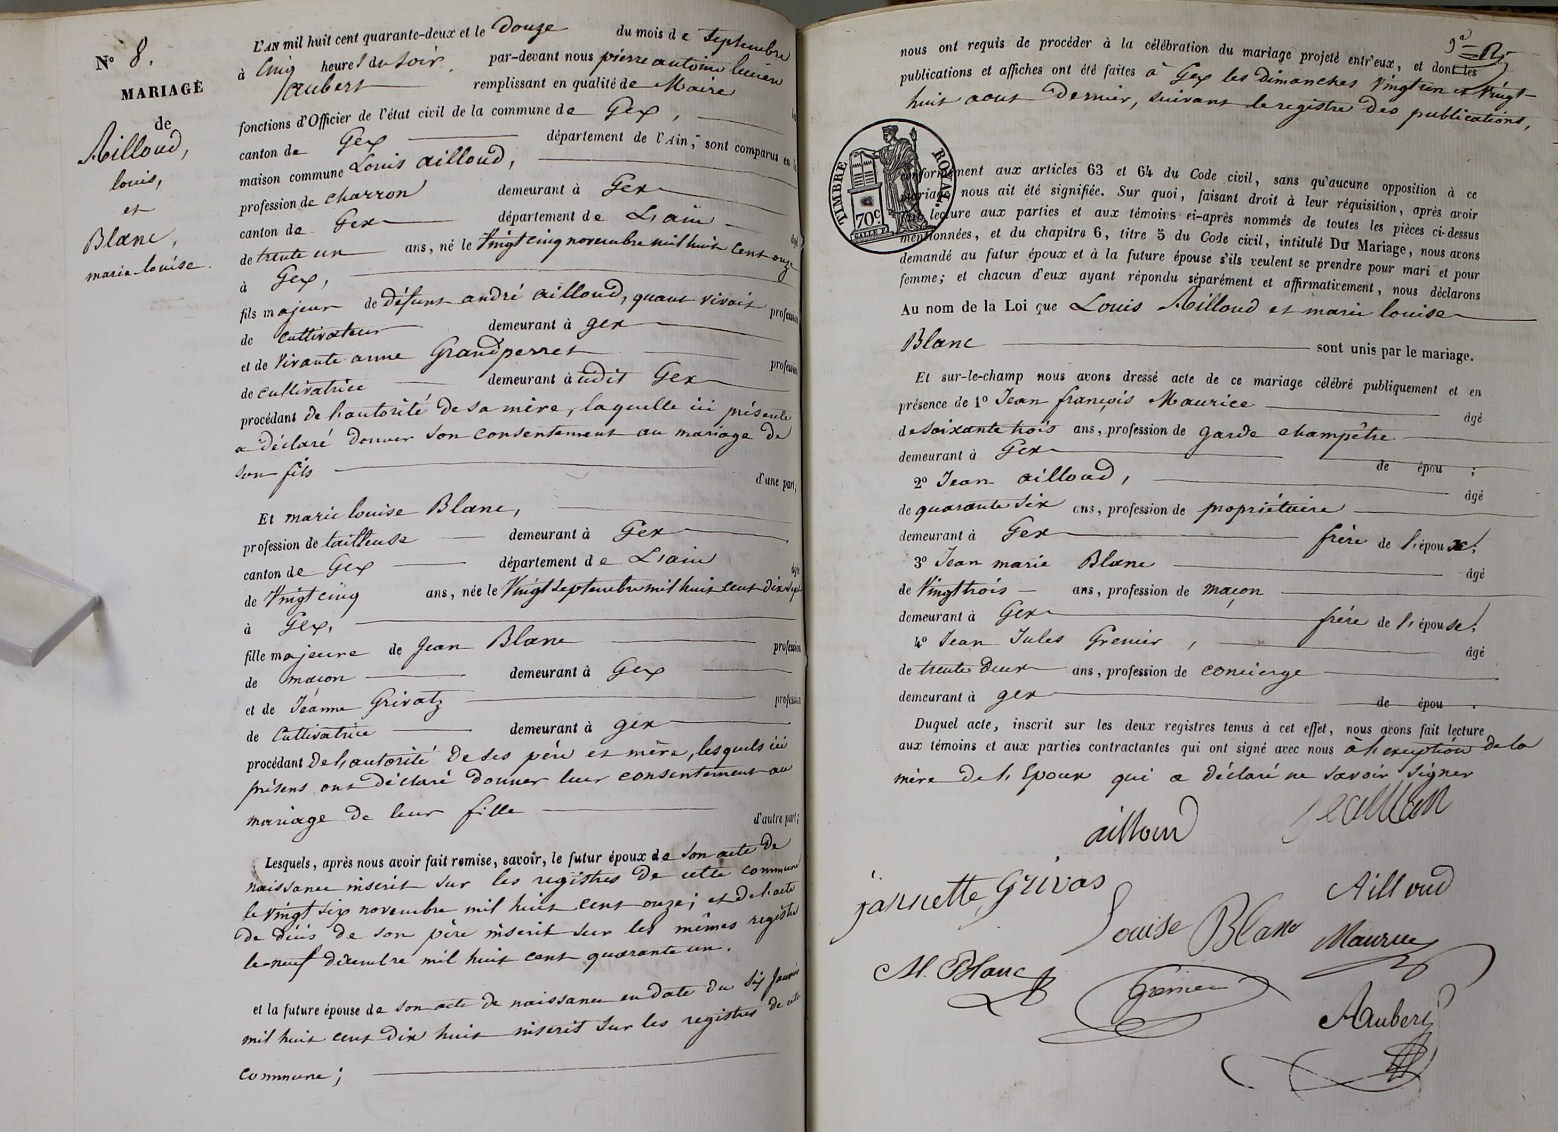 N° 8.
MARIAGE
de
Ailloud,
louis,
et
Blanc,
marie louise.
L'AN mil huit cent quarante-deux et le Douze du mois de Septembre
à Cinq heures du Soir, par-devant nous pierre antoine lucien
Jaubert remplissant en qualité de Maire
fonctions d'Officier de l'état civil de la commune de Gex,
canton de Gex département de l'Ain, sont comparus en la
maison commune Louis ailloud,
profession de charron demeurant à Gex
canton de Gex département de L'ain
de trente un ans, né le Vingt cinq novembre mil huit cent onze
à Gex,
fils majeur de défunt andré ailloud, quant vivait profession
de Cultivateur demeurant à gex
et de Vivante anne Grandperret profession
de cultivatrice demeurant à udit Gex
procédant de l'autorité de sa mère, laquelle ici présente
a déclaré donner son consentement au mariage de
son fils d'une part,
Et marie louise Blanc,
profession de tailleuse demeurant à Gex
canton de Gex département de L'ain
de Vingt cinq ans, née le Vingt Septembre mil huit cent dix sept
à Gex,
fille majeure de Jean Blanc profession
de maçon demeurant à Gex
et de Jéanne Grivatz profession
de Cultivatrice demeurant à gex
procédant de l'autorité de ses père et mère, lesquels ici
présens ont déclaré donner leur consentement au
mariage de leur fille d'autre part;
Lesquels, après nous avoir fait remise, savoir, le futur époux de son acte de
naissance inscrit sur les registres de cette commune
le vingt six novembre mil huit cent onze; et de l'acte
de décès de son père inscrit sur les mêmes registres
le neuf décembre mil huit cent quarante un.
et la future épouse de son acte de naissance en date du six Janvier
mil huit cent dix huit inscrit sur les registres de cette
commune;
nous ont requis de procéder à la célébration du mariage projeté entr'eux, et dont les
publications et affiches ont été faites à Gex les Dimanches Vingt un et Vingt-
huit aout dernier, suivant le registre des publications,
TIMBRE ROYAL
70c
conformément aux articles 63 et 64 du Code civil, sans qu'aucune opposition à ce
mariage nous ait été signifiée. Sur quoi, faisant droit à leur réquisition, après avoir
fait lecture aux parties et aux témoins ci-après nommés de toutes les pièces ci-dessus
mentionnées, et du chapitre 6, titre 5 du Code civil, intitulé Du Mariage, nous avons
demandé au futur époux et à la future épouse s'ils veulent se prendre pour mari et pour
femme; et chacun d'eux ayant répondu séparément et affirmativement, nous déclarons
Au nom de la Loi que Louis Ailloud et marie louise
Blanc sont unis par le mariage.
Et sur-le-champ nous avons dressé acte de ce mariage célébré publiquement et en
présence de 1° Jean françois Maurice âgé
de Soixante trois ans, profession de garde champêtre
demeurant à Gex de épou ;
2° Jean ailloud, âgé
de quarante six ans, profession de propriétaire
demeurant à Gex frère de l'époux;
3° Jean marie Blanc âgé
de Vingt trois ans, profession de maçon
demeurant à Gex frère de l'épouse;
4° Jean Jules Grenier, âgé
de trente deux ans, profession de concierge
demeurant à gex de épou .
Duquel acte, inscrit sur les deux registres tenus à cet effet, nous avons fait lecture
aux témoins et aux parties contractantes qui ont signé avec nous à l'exception de la
mère de l'Epoux qui a déclaré ne savoir signer
ailloud
jannette Grivas
Ailloud
Louise Blanc
Maurice
M. Blanc
Grenier
Jaubert